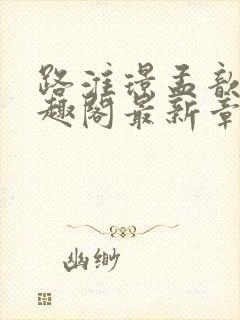 路淮璟孟歆
趣阁最新章
幽缈